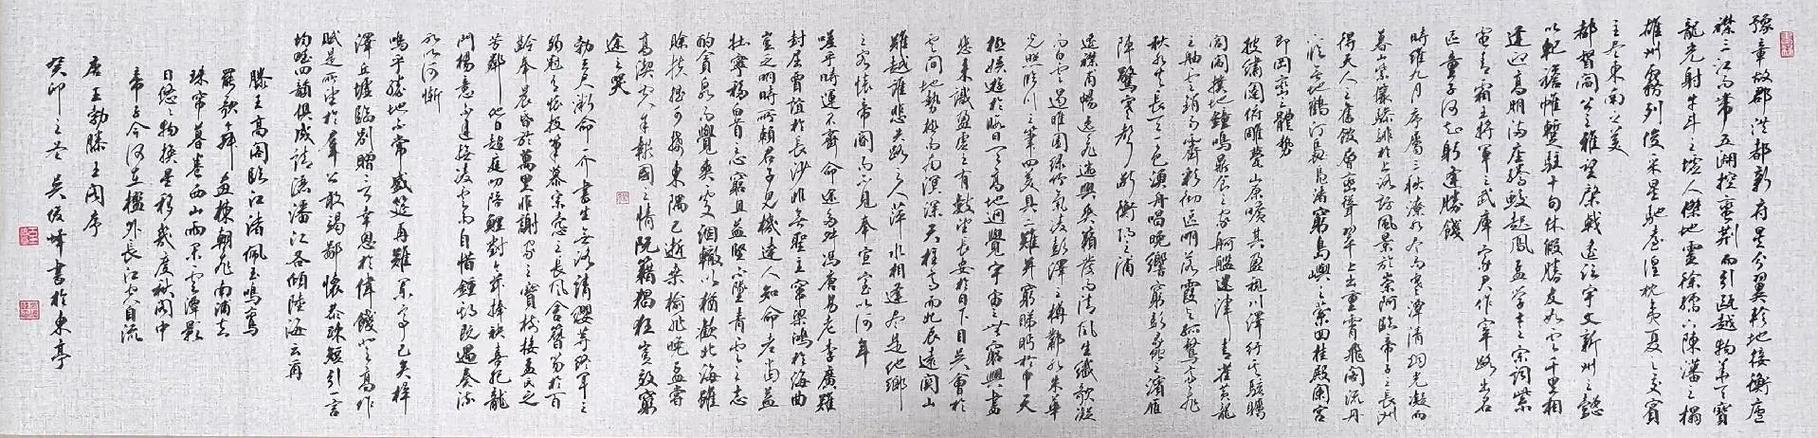 豫章故郡洪都新府星分翼軫地接衡廬
襟三江而帶五湖控蠻荊而引甌越物華天寶
龍光射牛斗之墟人傑地靈徐孺下陳蕃之榻
雄州霧列俊采星馳臺隍枕夷夏之交賓
主盡東南之美
都督閻公之雅望棨戟遙臨宇文新州之懿
範襜帷暫駐十旬休假勝友如雲千里相
逢迎高朋滿座騰蛟起鳳孟學士之詞宗紫
電青霜王將軍之武庫家君作宰路出名
區童子何知躬逢勝餞
時維九月序屬三秋潦水盡而寒潭清烟光凝而
暮山紫儼驂騑於上路訪風景於崇阿臨帝子之長洲
得天人之舊館層巒聳翠上出重霄飛閣流丹
下臨無地鶴汀鳧渚窮島嶼之縈回桂殿蘭宮
即岡巒之體勢
披繡闥俯雕甍山原曠其盈視川澤紆其駭矚
閭閻撲地鐘鳴鼎食之家舸艦迷津青雀黃龍
之舳雲銷雨霽彩徹區明落霞與孤鶩齊飛
秋水共長天一色漁舟唱晚響窮彭蠡之濱雁
陣驚寒聲斷衡陽之浦
遙襟甫暢逸興遄飛爽籟發而清風生纖歌凝
而白雲遏睢園綠竹氣凌彭澤之樽鄴水朱華
光照臨川之筆四美具二難并窮睇眄於中天
極娛遊於暇日天高地迥覺宇宙之無窮興盡
悲來識盈虛之有數望長安於日下目吳會於
雲間地勢極而南溟深天柱高而北辰遠關山
難越誰悲失路之人萍水相逢盡是他鄉
之客懷帝閽而不見奉宣室以何年
嗟乎時運不齊命途多舛馮唐易老李廣難
封屈賈誼於長沙非無聖主竄梁鴻於海曲
豈乏明時所賴君子見機達人知命老當益
壯寧移白首之心窮且益堅不墜青雲之志
酌貪泉而覺爽處涸轍以猶歡北海雖
賒扶搖可接東隅已逝桑榆非晚孟嘗
高潔空餘報國之情阮籍猖狂豈效窮
途之哭
勃三尺微命一介書生無路請纓等終軍之
弱冠有懷投筆慕宗愨之長風舍簪笏於百
齡奉晨昏於萬里非謝家之寶樹接孟氏之
芳鄰他日趨庭叨陪鯉對今茲捧袂喜托龍
門楊意不逢撫凌雲而自惜鍾期既遇奏流
水以何慚
嗚乎勝地不常盛筵再難蘭亭已矣梓
澤丘墟臨別贈言幸承恩於偉餞登高作
賦是所望於群公敢竭鄙懷恭疏短引一言
均賦四韻俱成請灑潘江各傾陸海云爾
滕王高閣臨江渚佩玉鳴鸞
罷歌舞畫棟朝飛南浦雲
珠帘暮卷西山雨閑雲潭影
日悠悠物換星移幾度秋閣中
帝子今何在檻外長江空自流
唐王勃滕王閣序
癸卯之冬吳俊峰書於東亭